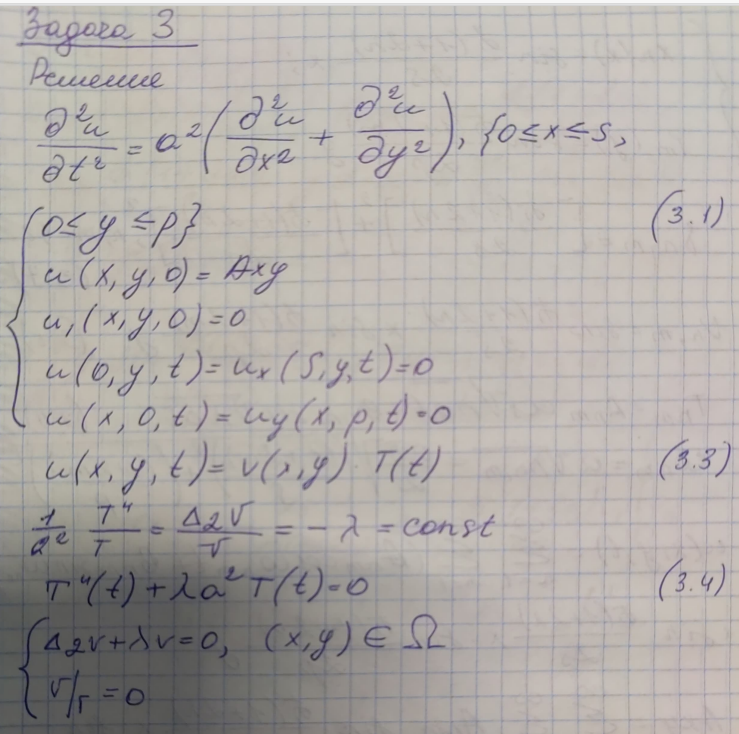 Задача 3
Решение
∂²u/∂t² = a²(∂²u/∂x² + ∂²u/∂y²), {0≤x≤s,
0≤y≤p} (3.1)
u(x,y,0)=Axy
u,(x,y,0)=0
u(0,y,t)=uₓ(s,y,t)=0
u(x,0,t)=uy(x,p,t)=0
u(x,y,t)=v(x,y)·T(t) (3.3)
1/a² T''/T = Δ₂v/v = -λ = const
T''(t)+λa²T(t)=0 (3.4)
Δ₂v+λv=0, (x,y)∈Ω
v/Γ=0